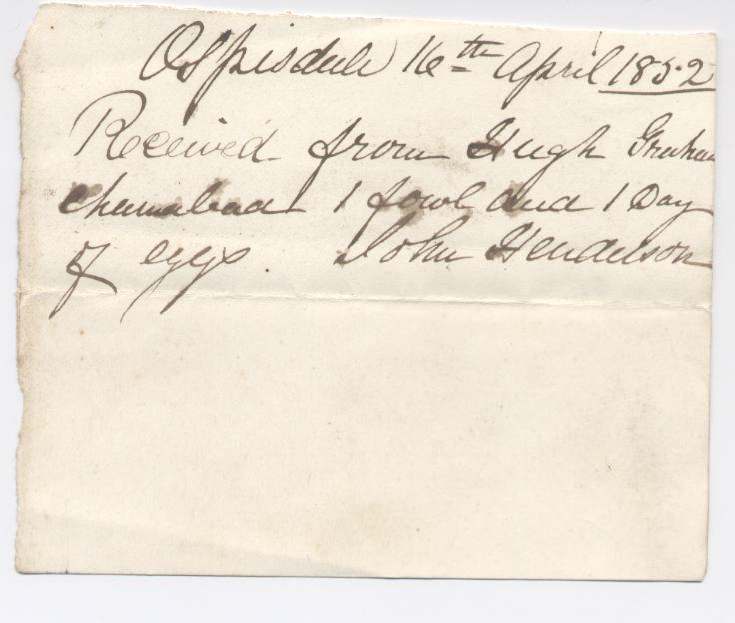 Ospisdale 16th April 1852
Received from Hugh Graham
1 fowl and 1 Day
of eggs. John Henderson